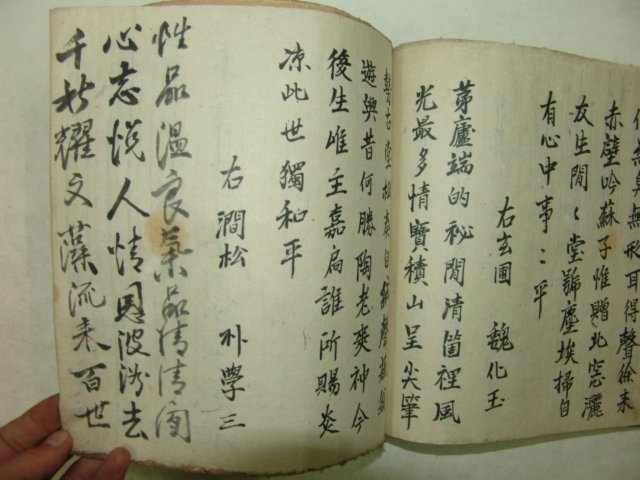 無形耳得聲徐來
赤壁吟蘇子惟贈北窓灑
友生閒〻堂號塵埃掃自
有心中事〻平
右玄圃 魏化玉
茅廬端的祕閒清箇裡風
光最多情寶積山呈尖筆
遊興昔何勝陶老爽神今
後生唯主嘉扁誰所賜炎
凉此世獨和平
右澗松 朴學三
性品溫良氣品清情
心志悅人情波去
千秋耀文藻流來百世